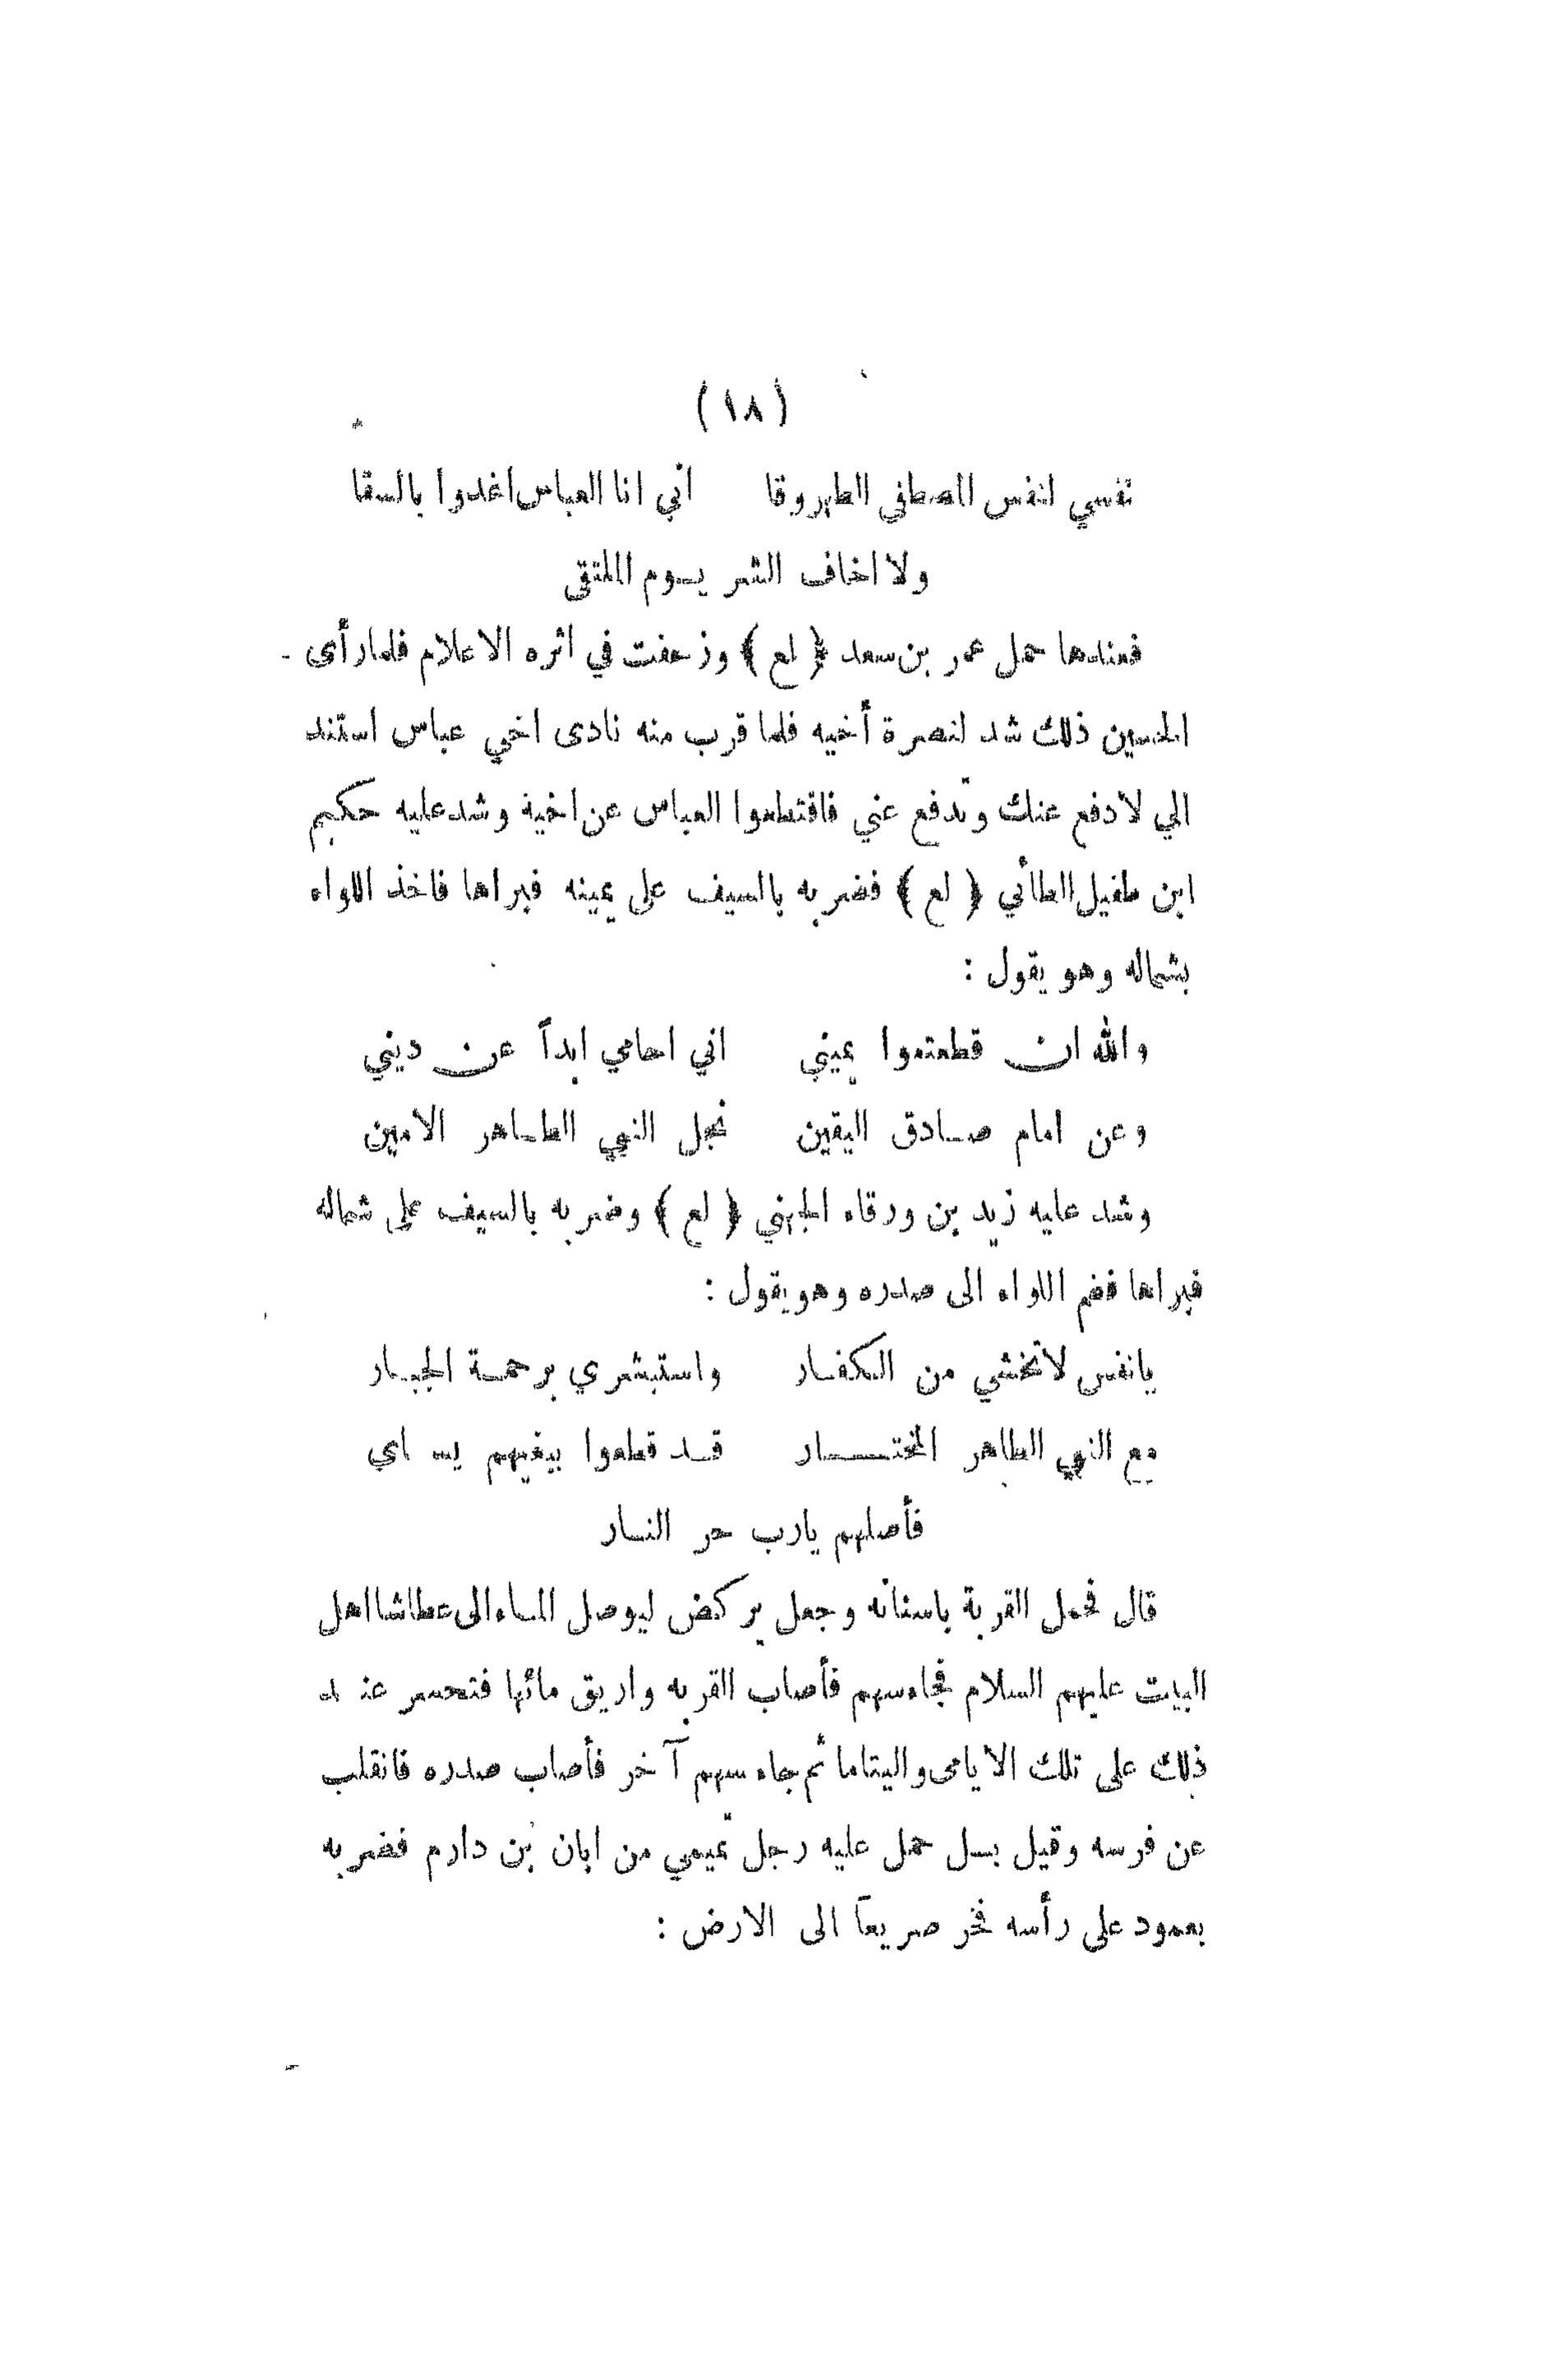 (١٨)
نفسي لنفس المصطفى الطهر وقا انى انا العباس اغدوا بالسقا
ولا اخاف الشر يوم الملتقى
فعندها حمل عمر بن سعد (لع) وزحفت في اثره الاعلام فلما رأى
الحسين ذلك شد لنصرة أخيه فلما قرب منه نادى اخي عباس استند
الي لادفع عنك وتدفع عني فاقتطعوا العباس عن اخية وشد عليه حكيم
ابن طفيل الطائي (لع) فضربه بالسيف على يمينه فبراها فاخذ اللواء
بشماله وهو يقول :
والله ان قطعتموا يميني اني احامي ابداً عن ديني
وعن امام صادق اليقين نجل النبي الطاهر الامين
وشد عليه زيد بن ورقاء الجهني (لع) وضربه بالسيف على شماله
فبراها فضم اللواء الى صدره وهو يقول :
يانفس لاتخشي من الكفار واستبشري برحمة الجبار
مع النبي الطاهر المختار قد قطعوا ببغيهم يساري
فأصلهم يارب حر النار
قال فحمل القربة باسنانه وجعل يركض ليوصل الماء الى عطاشا اهل
البيت عليهم السلام فجاء سهم فأصاب القربه واريق مائها فتحسر عند
ذلك على تلك الايامى واليتاما ثم جاء سهم آخر فأصاب صدره فانقلب
عن فرسه وقيل بل حمل عليه رجل تميمي من ابان بن دارم فضربه
بعمود على رأسه فخر صريعاً الى الارض :